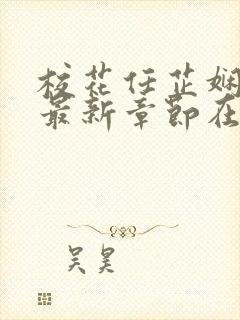 校花任芷娴
最新章节在
吴昊